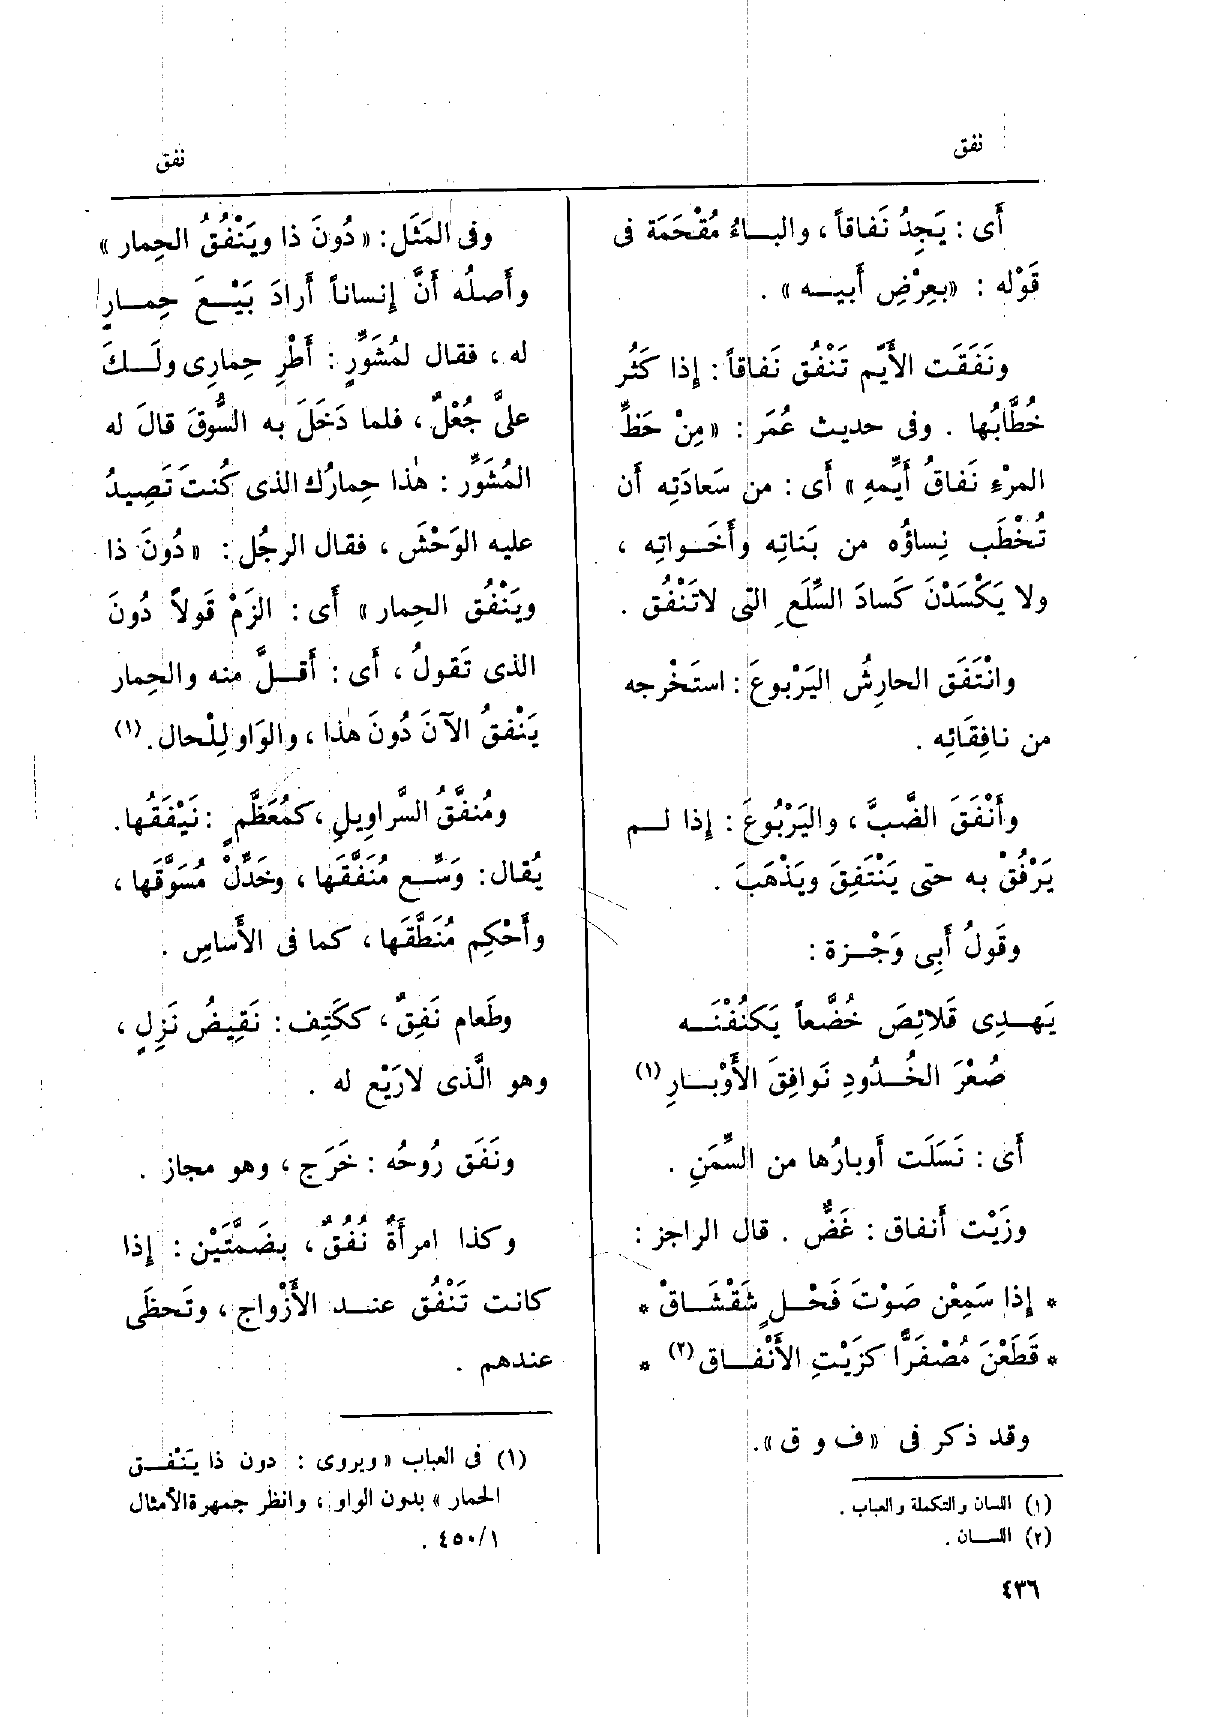 نفق
نفق
أَى : يَجِدُ نَفاقاً ، والبـاءُ مُقْحَمَة فى
قَوْله : «بعِرْضِ أَبيـه» .
ونَفَقَت الأَيِّم تَنْفُق نَفاقاً : إِذا كَثُر
خُطَّابُها . وفى حديث عُمَر : «مِنْ حَظِّ
المرْءِ نَفاقُ أَيِّمهِ » أَى : من سَعادَتِه أَن
تُخْطَب نِساؤُه من بَناتِه وأَخَـواتِه ،
ولا يَكْسَدْنَ كَسادَ السِّلَعِ التى لاتَنْفُق .
وانْتَفَق الحارِشُ اليَرْبُوعَ : استَخْرجه
من نافِقَائِه .
وأَنْفَقَ الضَّبَّ ، واليَرْبُوعَ : إِذا لـم
يَرْفُقْ به حتى يَنْتَفِقَ ويَذْهَبَ .
وقَولُ أَبِى وَجْـزة :
يَهـدِى قَلائِصَ خُضَّعاً يَكنُفْنَـه
صُعْرَ الخُـدُودِ نَوافِقَ الأَوْبـارِ (١)
أَى : نَسَلَت أَوبارُها من السِّمَنِ .
وزَيْت أَنفاق : غَضٌّ . قال الراجز :
* إِذا سَمِعْن صَوْتَ فَحْـلٍ شَقْشَـاقْ *
* قَطَعْنَ مُصْفَرًّا كزَيْتِ الأَنْفـاق (٢) *
وقد ذكر فى «ف و ق».
(١) اللسان والتكملة والعباب .
(٢) اللسـان .
٤٣٦
وفى المَثَل : «دُونَ ذا ويَنْفُقُ الحِمار »
وأَصلُه أَنَّ إِنساناً أَرادَ بَيْـعَ حِمـارٍ
له ، فقال لمُشَوِّرٍ : أَطْرِ حِمارِى ولَـكَ
علىَّ جُعْلٌ ، فلما دَخَلَ به السُّوقَ قالَ له
المُشَوِّر : هٰذا حِمارُك الذى كُنتَ تَصِيدُ
عليه الوَحْشَ ، فقال الرجُل : «دُونَ ذا
ويَنْفُق الحِمار» أَى : الزَمْ قَولاً دُونَ
الذى تَقولُ ، أَى : أَقـلَّ منه والحِمار
يَنْفقُ الآنَ دُونَ هٰذا ، والوَاو لِلْحال . (١)
ومُنفَّقُ السَّراوِيلِ ، كمُعَظَّمٍ : نَيْفَقُها .
يُقال : وَسِّـع مُنَفَّقَها ، وخَدِّلْ مُسَوَّقَها ،
وأَحْكِم مُنَطَّقَها ، كما فى الأَساسِ .
وطَعام نَفِقٌ ، ككَتِف : نَقِيضُ نَزِلٍ ،
وهو الَّذى لارَيْع له .
ونَفَق رُوحُه : خَرَج ، وهو مجاز .
وكذا امرأَةٌ نُفُقٌ ، بضَمَّتَيْن : إِذا
كانت تَنْفُق عنـد الأَزْواج ، وتَحظَى
عندهم .
(١) فى العباب «ويروى : دون ذا يَنْفـق
الحمار » بدون الواو ، وانظر جمهرة الأمثال
٤٥٠/١ .